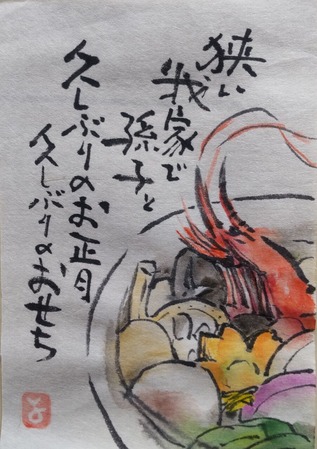 狭い
我家で
孫子と
久しぶりのお正月
久しぶりのおせち
よ